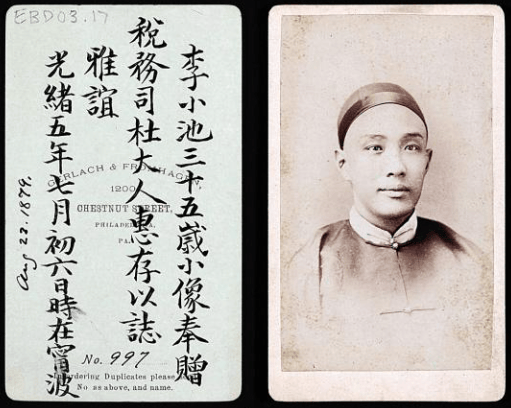 EBD03.17
李小池三十五歲小像奉贈
稅務司杜大人惠存以誌
雅誼
光緒五年七月初六日時在甯波
Aug 23. 1879.
GERLACH & FROMHAGEN,
1200
CHESTNUT STREET,
PHILADELPHIA,
PA.
No. 997
In ordering Duplicates please
No as above, and name.